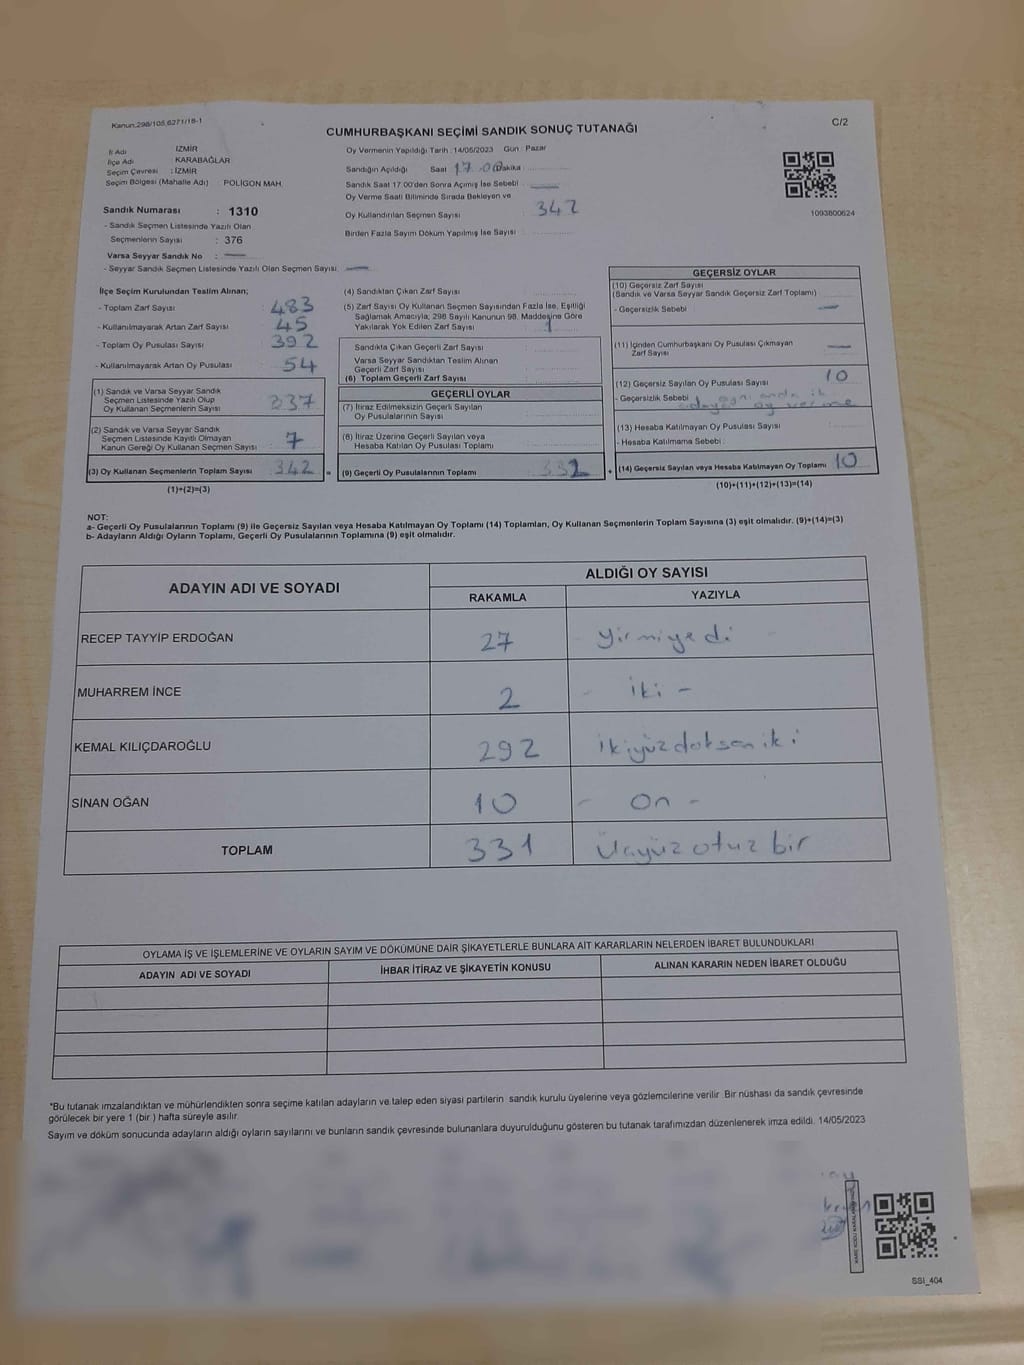 Kanun:298/105,6271/18-1
C/2
CUMHURBAŞKANI SEÇİMİ SANDIK SONUÇ TUTANAĞI
İl Adı İZMİR
İlçe Adı : KARABAĞLAR
Seçim Çevresi : İZMİR
Seçim Bölgesi (Mahalle Adı) : POLİGON MAH.
Sandık Numarası : 1310
- Sandık Seçmen Listesinde Yazılı Olan
Seçmenlerin Sayısı : 376
Varsa Seyyar Sandık No :
- Seyyar Sandık Seçmen Listesinde Yazılı Olan Seçmen Sayısı
Oy Vermenin Yapıldığı Tarih : 14/05/2023 Gün : Pazar
Sandığın Açıldığı Saat 17.00 Dakika
Sandık Saat 17.00'den Sonra Açımış İse Sebebi :
Oy Verme Saati Bitiminde Sırada Bekleyen ve
Oy Kullandırılan Seçmen Sayısı 342
Birden Fazla Sayım Döküm Yapılmış İse Sayısı
1093800624
İlçe Seçim Kurulundan Teslim Alınan;
- Toplam Zarf Sayısı : 483
- Kullanılmayarak Artan Zarf Sayısı : 45
- Toplam Oy Pusulası Sayısı : 392
- Kullanılmayarak Artan Oy Pusulası : 54
(1) Sandık ve Varsa Seyyar Sandık
Seçmen Listesinde Yazılı Olup
Oy Kullanan Seçmenlerin Sayısı : 337
(2) Sandık ve Varsa Seyyar Sandık
Seçmen Listesinde Kayıtlı Olmayan
Kanun Gereği Oy Kullanan Seçmen Sayısı : 7
(3) Oy Kullanan Seçmenlerin Toplam Sayısı : 342
(1)+(2)=(3)
(4) Sandıktan Çıkan Zarf Sayısı
(5) Zarf Sayısı Oy Kullanan Seçmen Sayısından Fazla İse, Eşitliği
Sağlamak Amacıyla; 298 Sayılı Kanunun 98. Maddesine Göre
Yakılarak Yok Edilen Zarf Sayısı : 1
Sandıkta Çıkan Geçerli Zarf Sayısı :
Varsa Seyyar Sandıktan Teslim Alınan
Geçerli Zarf Sayısı
(6) Toplam Geçerli Zarf Sayısı :
GEÇERLİ OYLAR
(7) İtiraz Edilmeksizin Geçerli Sayılan
Oy Pusulalarının Sayısı :
(8) İtiraz Üzerine Geçerli Sayılan veya
Hesaba Katılan Oy Pusulası Toplamı :
(9) Geçerli Oy Pusulalarının Toplamı : 332
GEÇERSİZ OYLAR
(10) Geçersiz Zarf Sayısı
(Sandık ve Varsa Seyyar Sandık Geçersiz Zarf Toplamı)
- Geçersizlik Sebebi
(11) İçinden Cumhurbaşkanı Oy Pusulası Çıkmayan
Zarf Sayısı
(12) Geçersiz Sayılan Oy Pusulası Sayısı 10
- Geçersizlik Sebebi aynı anda iki
adaya oy verme
(13) Hesaba Katılmayan Oy Pusulası Sayısı
- Hesaba Katılmama Sebebi :
(14) Geçersiz Sayılan veya Hesaba Katılmayan Oy Toplamı 10
(10)+(11)+(12)+(13)=(14)
NOT:
a- Geçerli Oy Pusulalarının Toplamı (9) ile Geçersiz Sayılan veya Hesaba Katılmayan Oy Toplamı (14) Toplamları, Oy Kullanan Seçmenlerin Toplam Sayısına (3) eşit olmalıdır. (9)+(14)=(3)
b- Adayların Aldığı Oyların Toplamı, Geçerli Oy Pusulalarının Toplamına (9) eşit olmalıdır.
ADAYIN ADI VE SOYADI
ALDIĞI OY SAYISI
RAKAMLA YAZIYLA
RECEP TAYYİP ERDOĞAN 27 yirmiyedi
MUHARREM İNCE 2 - iki -
KEMAL KILIÇDAROĞLU 292 ikiyüzdoksaniki
SİNAN OĞAN 10 - On -
TOPLAM 331 Üçyüz otuz bir
OYLAMA İŞ VE İŞLEMLERİNE VE OYLARIN SAYIM VE DÖKÜMÜNE DAİR ŞİKAYETLERLE BUNLARA AİT KARARLARIN NELERDEN İBARET BULUNDUKLARI
ADAYIN ADI VE SOYADI İHBAR İTİRAZ VE ŞİKAYETİN KONUSU ALINAN KARARIN NEDEN İBARET OLDUĞU
*Bu tutanak imzalandıktan ve mühürlendikten sonra seçime katılan adayların ve talep eden siyasi partilerin sandık kurulu üyelerine veya gözlemcilerine verilir. Bir nüshası da sandık çevresinde
görülecek bir yere 1 (bir ) hafta süreyle asılır.
Sayım ve döküm sonucunda adayların aldığı oyların sayılarını ve bunların sandık çevresinde bulunanlara duyurulduğunu gösteren bu tutanak tarafımızdan düzenlenerek imza edildi. 14/05/2023
SSI_404